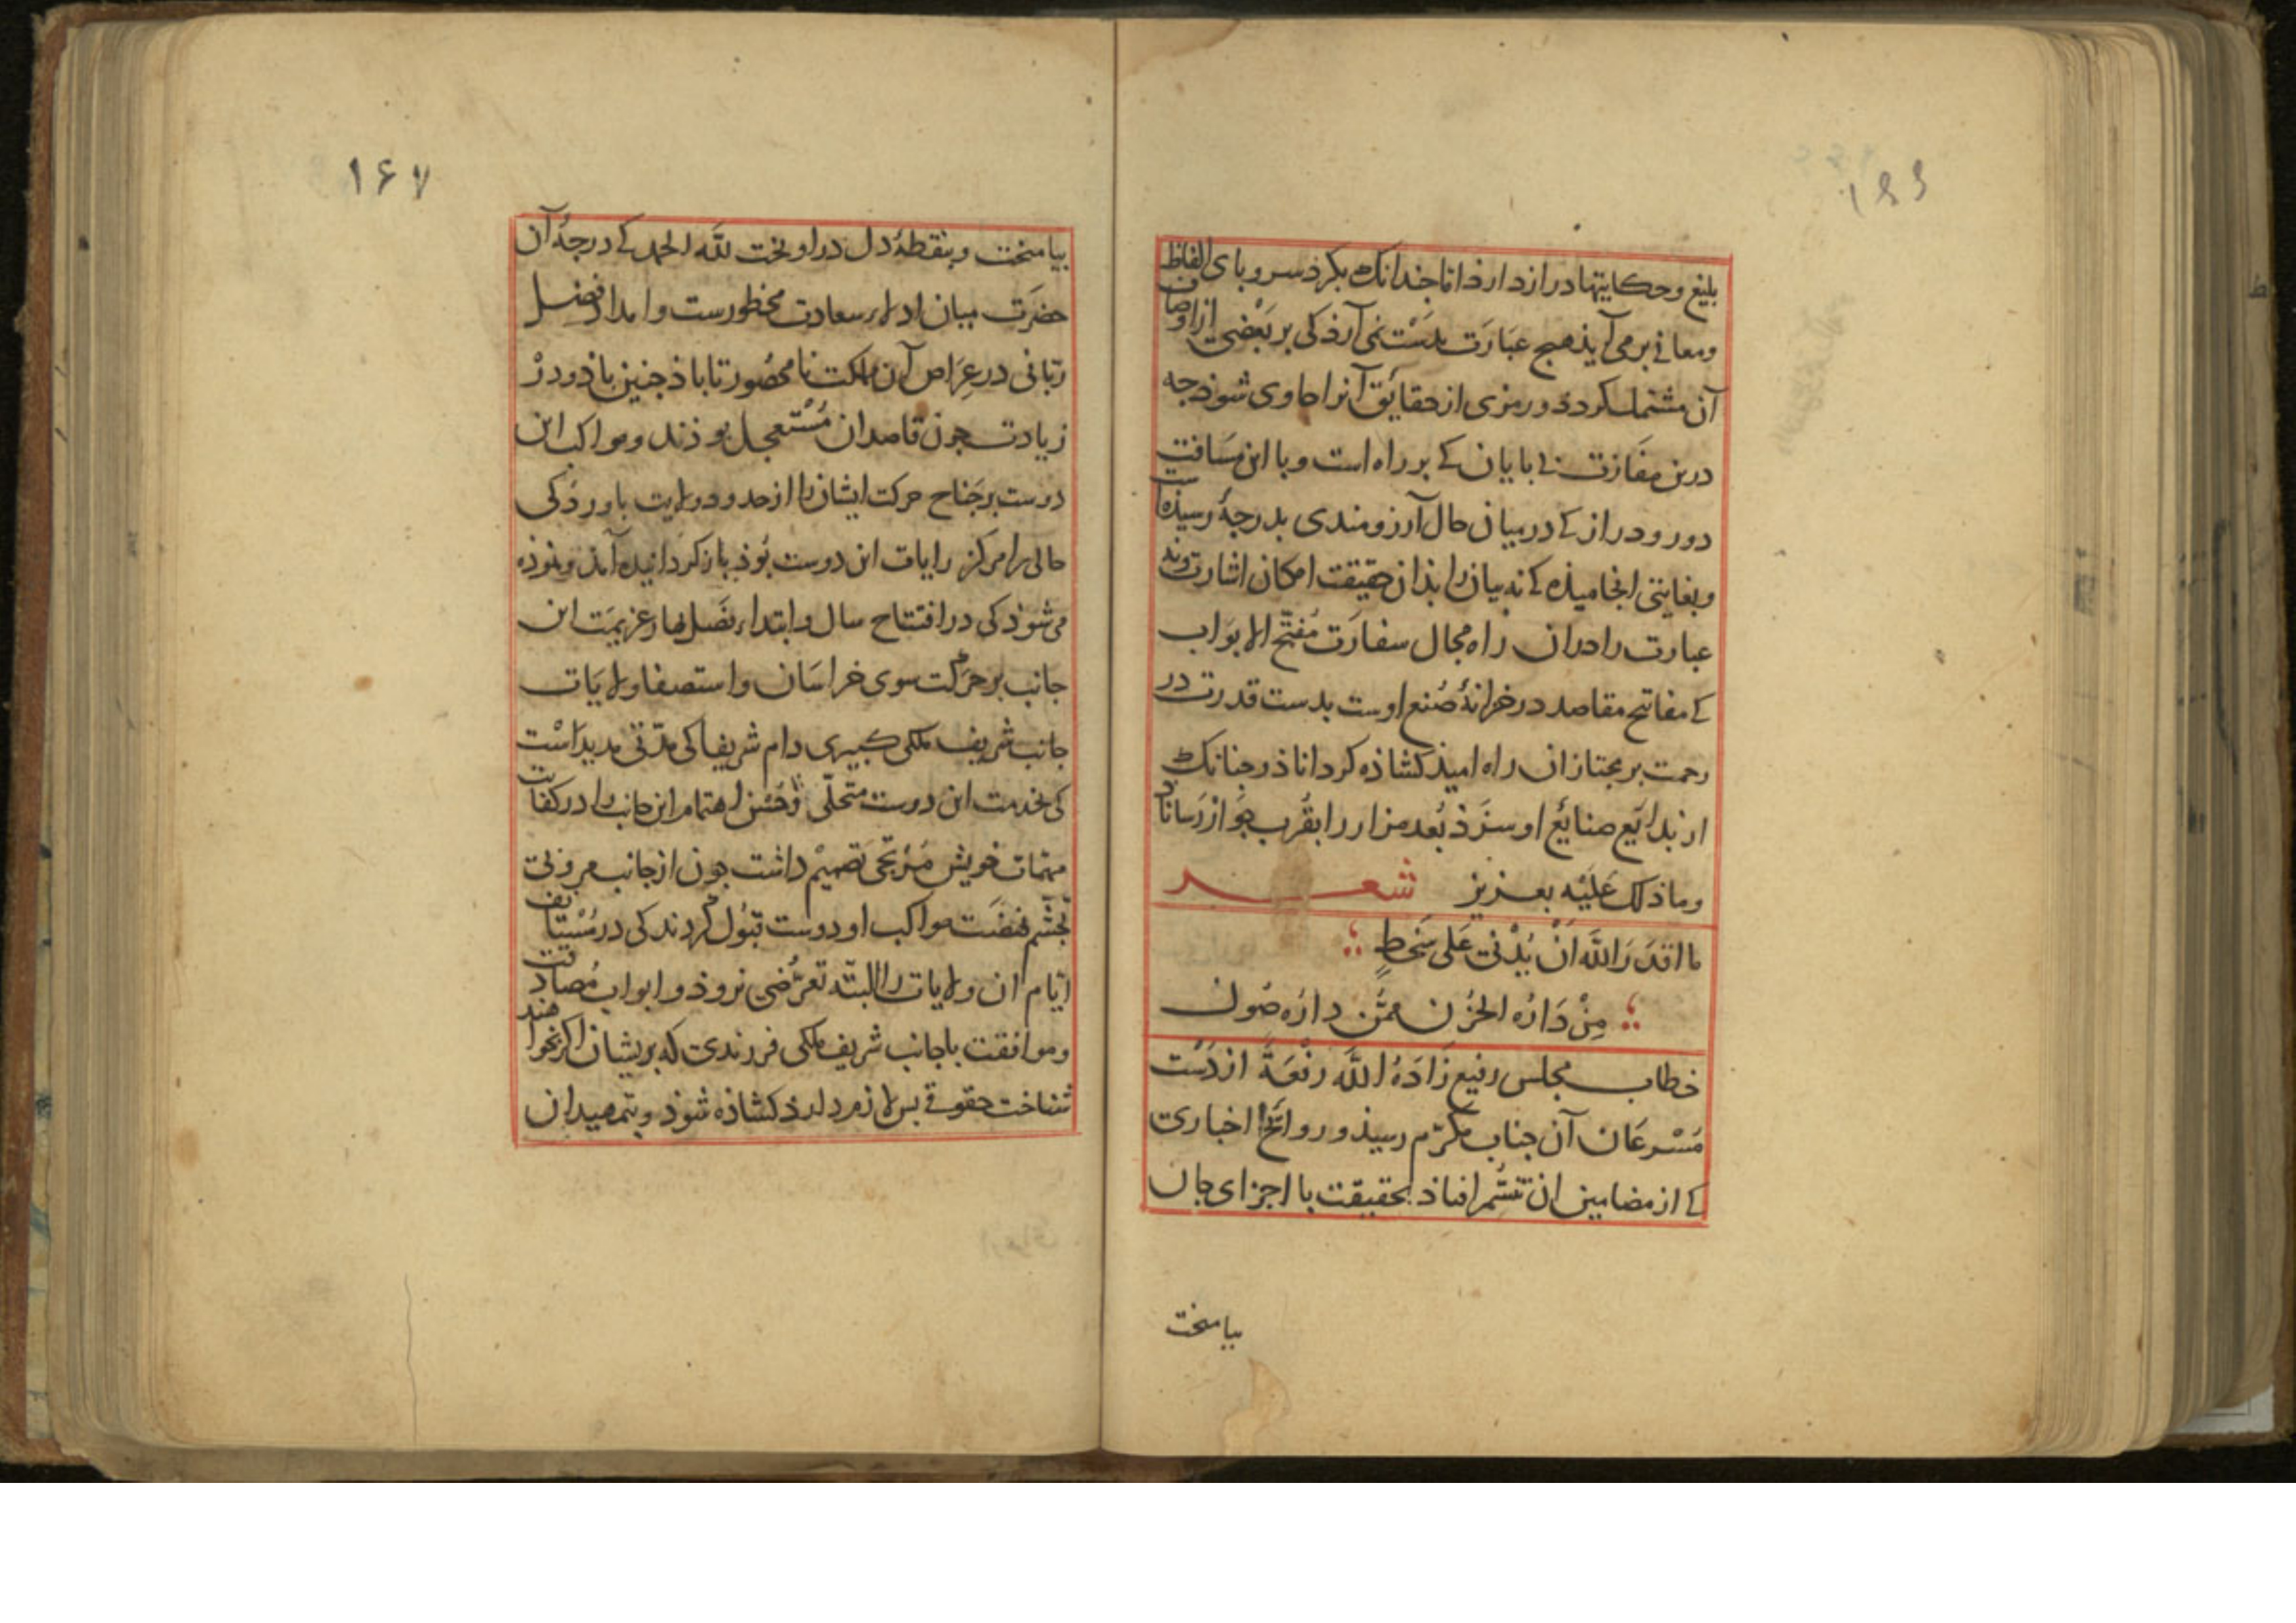 بلیغ و حکایتها دراز دارذ اما جندانک بکرد سر و بای الفاظ
و معانی برمی آیذ هیج عبارت بدست نمی آرذ کی بر بعضی از اوصاف
آن مشتمل کردذ و رمزی از حقائق آنرا حاوی شوذ جه
درین مفازت بی بایان کی بر راه است و با این مسافت
دور و دراز کی در میان حال آرزومندی بدرجۀ رسیذه است
و بغایتی انجامیذه کی نه بیان را بذان حقیقت امکان اشارتوند
عبارت را دران راه مجال سفارت مفتح الابواب
کی مفاتیح مقاصد در خزانۀ صنع اوست بدست قدرت در
رحمت بر مجتازان راه امیذ کشاذه کرداناذ و جنانک
از بدایع صنایع او سزذ بعد مزار را بقرب جوار رساناذ
و ما ذلک علیه بعزیز شعر
ما اقدر الله ان یدنی علی شحط
من داره الحزن ممن داره صول
خطاب مجلس رفیع زاده الله رفعة از دست
مسرعان آن جناب مکرم رسیذ و روائح اخباری
کی از مضامین ان تنسم افتاذ بحقیقت با اجزای جان
بیامیخت
۱۶۷
بیامیخت و بنقطۀ دل دراویخت لله الحمد کی درجۀ آن
حضرت میان ادلاء سعادت محظورست و امداد فضل
ربانی در عراص آن مملکت نامحصور تا باذ جنین باذ و در
زیادت جون قاصدان مستعجل بوذند و مواکب این
دوست بر جناح حرکت ایشان را از حدود ولایت باورد کی
حالی را مرکز رایات این دوست بوذ باز کردانیده آمد و نموذه
می شوذ کی در افتتاح سال و ابتداء فصل بهار عزیمت این
جانب بر حرکت سوی خراسان و استصفا ولایات
جانب شریف ملکی کبیری دام شریفا کی مدتی مدید است
کی بخدمت این دوست متحلی و حسن اهتمام این جانب را در کفایت
مهمات خویش مرتجی تصمیم داشت جون از جانب مرونی
تجشم نهضت مواکب او دوست قبول کردند کی در مستانف
ایام ان ولایات را البته تعرضی نروذ و ابواب مصادقت
و موافقت با جانب شریف ملکی فرزندی که بریشان اکر بخواهند
شناخت حقوقی بس لازم دارذ کشاذه شوذ و بتمهید ان